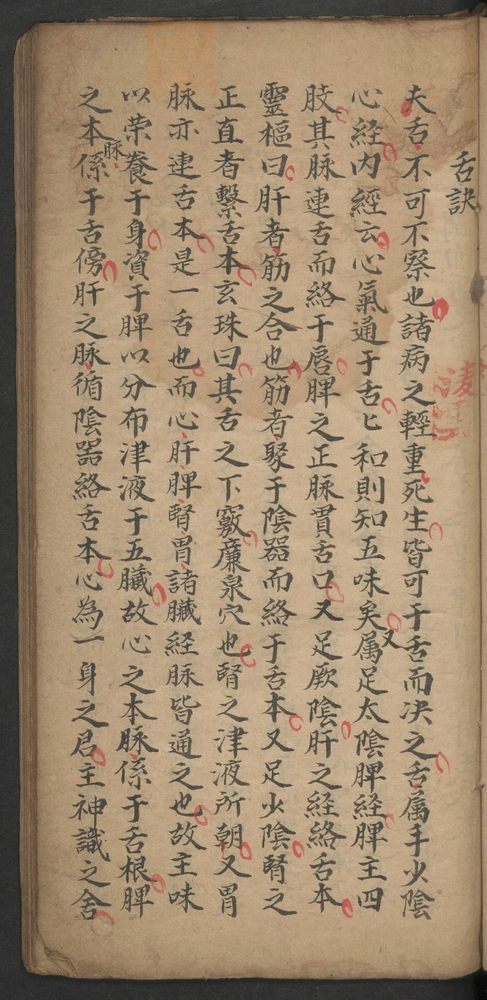 舌訣
夫舌不可不察也諸病之輕重死生皆可于舌而决之舌属手少陰
心経内經云心氣通于舌匕和則知五味矣又属足太陰脾經脾主四
肢其脉連舌而絡于唇脾之正脉貫舌口又足厥陰肝之経絡舌本
靈樞曰肝者筋之合也筋者聚于陰器而絡于舌本又足少陰腎之
正直者繫舌本玄珠曰其舌之下竅廉泉穴也腎之津液所朝又胃
脉亦連舌本是一舌也而心肝脾腎胃諸臟経脉皆通之也故主味
以荣養于身資于脾以分布津液于五臟故心之本脉係于舌根脾
之本脉係于舌傍肝之脉循陰器絡舌本心為一身之君主神識之舍